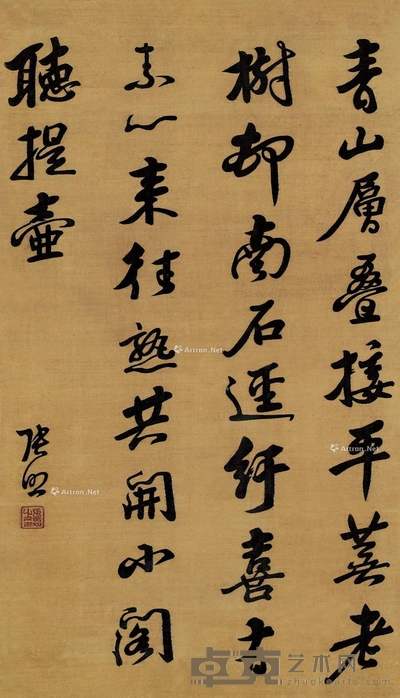 青山層叠接平蕪老
樹邨南石逕紆喜有
素心來往熟共開小閣
聽提壺
張照
Artron.Net
Artron.Net
Artron.Net
Artron.Net
卓克艺术网